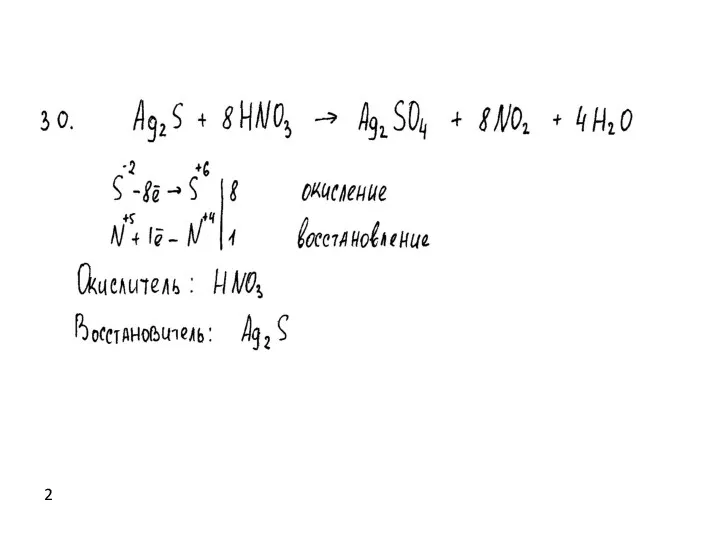 30. Ag₂S + 8HNO₃ → Ag₂SO₄ + 8NO₂ + 4H₂O
S⁻² - 8ē → S⁺⁶ | 8 окисление
N⁺⁵ + 1ē - N⁺⁴ | 1 восстановление
Окислитель: HNO₃
Восстановитель: Ag₂S
2